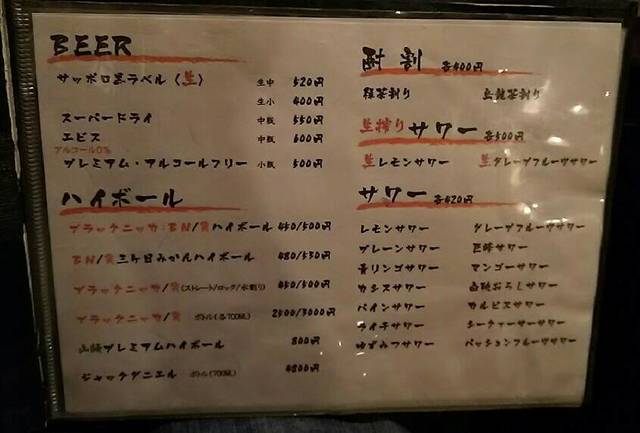 BEER
サッポロ黒ラベル〈生〉 生中 520円
生小 400円
スーパードライ 中瓶 550円
エビス 中瓶 600円
アルコール0%
プレミアム・アルコールフリー 小瓶 500円
ハイボール
ブラックニッカ:BN/黄ハイボール 450/500円
BN/黄三ケ日みかんハイボール 480/530円
ブラックニッカ/黄(ストレート/ロック/水割り) 450/500円
ブラックニッカ/黄 ボトル(700ML) 2500/3000円
山崎プレミアムハイボール 800円
ジャックダニエル ボトル(700ML) 4800円
酎割 各400円
緑茶割り 烏龍茶割り
生搾りサワー 各500円
生レモンサワー 生グレープフルーツサワー
サワー 各420円
レモンサワー グレープフルーツサワー
プレーンサワー 巨峰サワー
青リンゴサワー マンゴーサワー
カシスサワー 白桃おろしサワー
パインサワー カルピスサワー
ライチサワー シークァーサーサワー
ゆずみつサワー パッションフルーツサワー